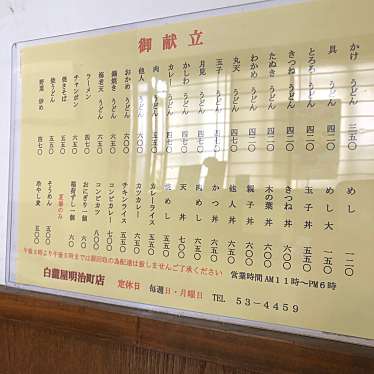 御献立
かけうどん 三五〇
具うどん 四二〇
とろろうどん 四二〇
きつねうどん 四二〇
たぬきうどん 四二〇
わかめうどん 四七〇
丸天うどん 四七〇
玉子うどん 四七〇
月見うどん 四七〇
かしわうどん 四七〇
カレーうどん
肉うどん
他人うどん
おかめうどん 六〇〇
鍋焼きうどん 六〇〇
海老天うどん
ラーメン 四七〇
チャンポン 五五〇
焼きそば 五五〇
焼うどん 五五〇
野菜炒め 四七〇
めし 一二〇
めし大
玉子丼 五五〇
きつね丼
木の葉丼
親子丼 六〇〇
他人丼
かつ丼
肉めし
天丼
焼めし 五五〇
カレーライス
カツカレー
チキンライス 六〇〇
コンビカレー
コンビカツ 八〇〇
おにぎり一個
稲荷ずし一個
夏場のみ
そうめん 五五〇
冷や麦 五五〇
午後2時より午後5時までは器回収の為配達は致しませんご了承ください
営業時間AM11時〜PM6時
白龍屋明治町店 定休日 毎週日・月曜日 TEL 53-4459